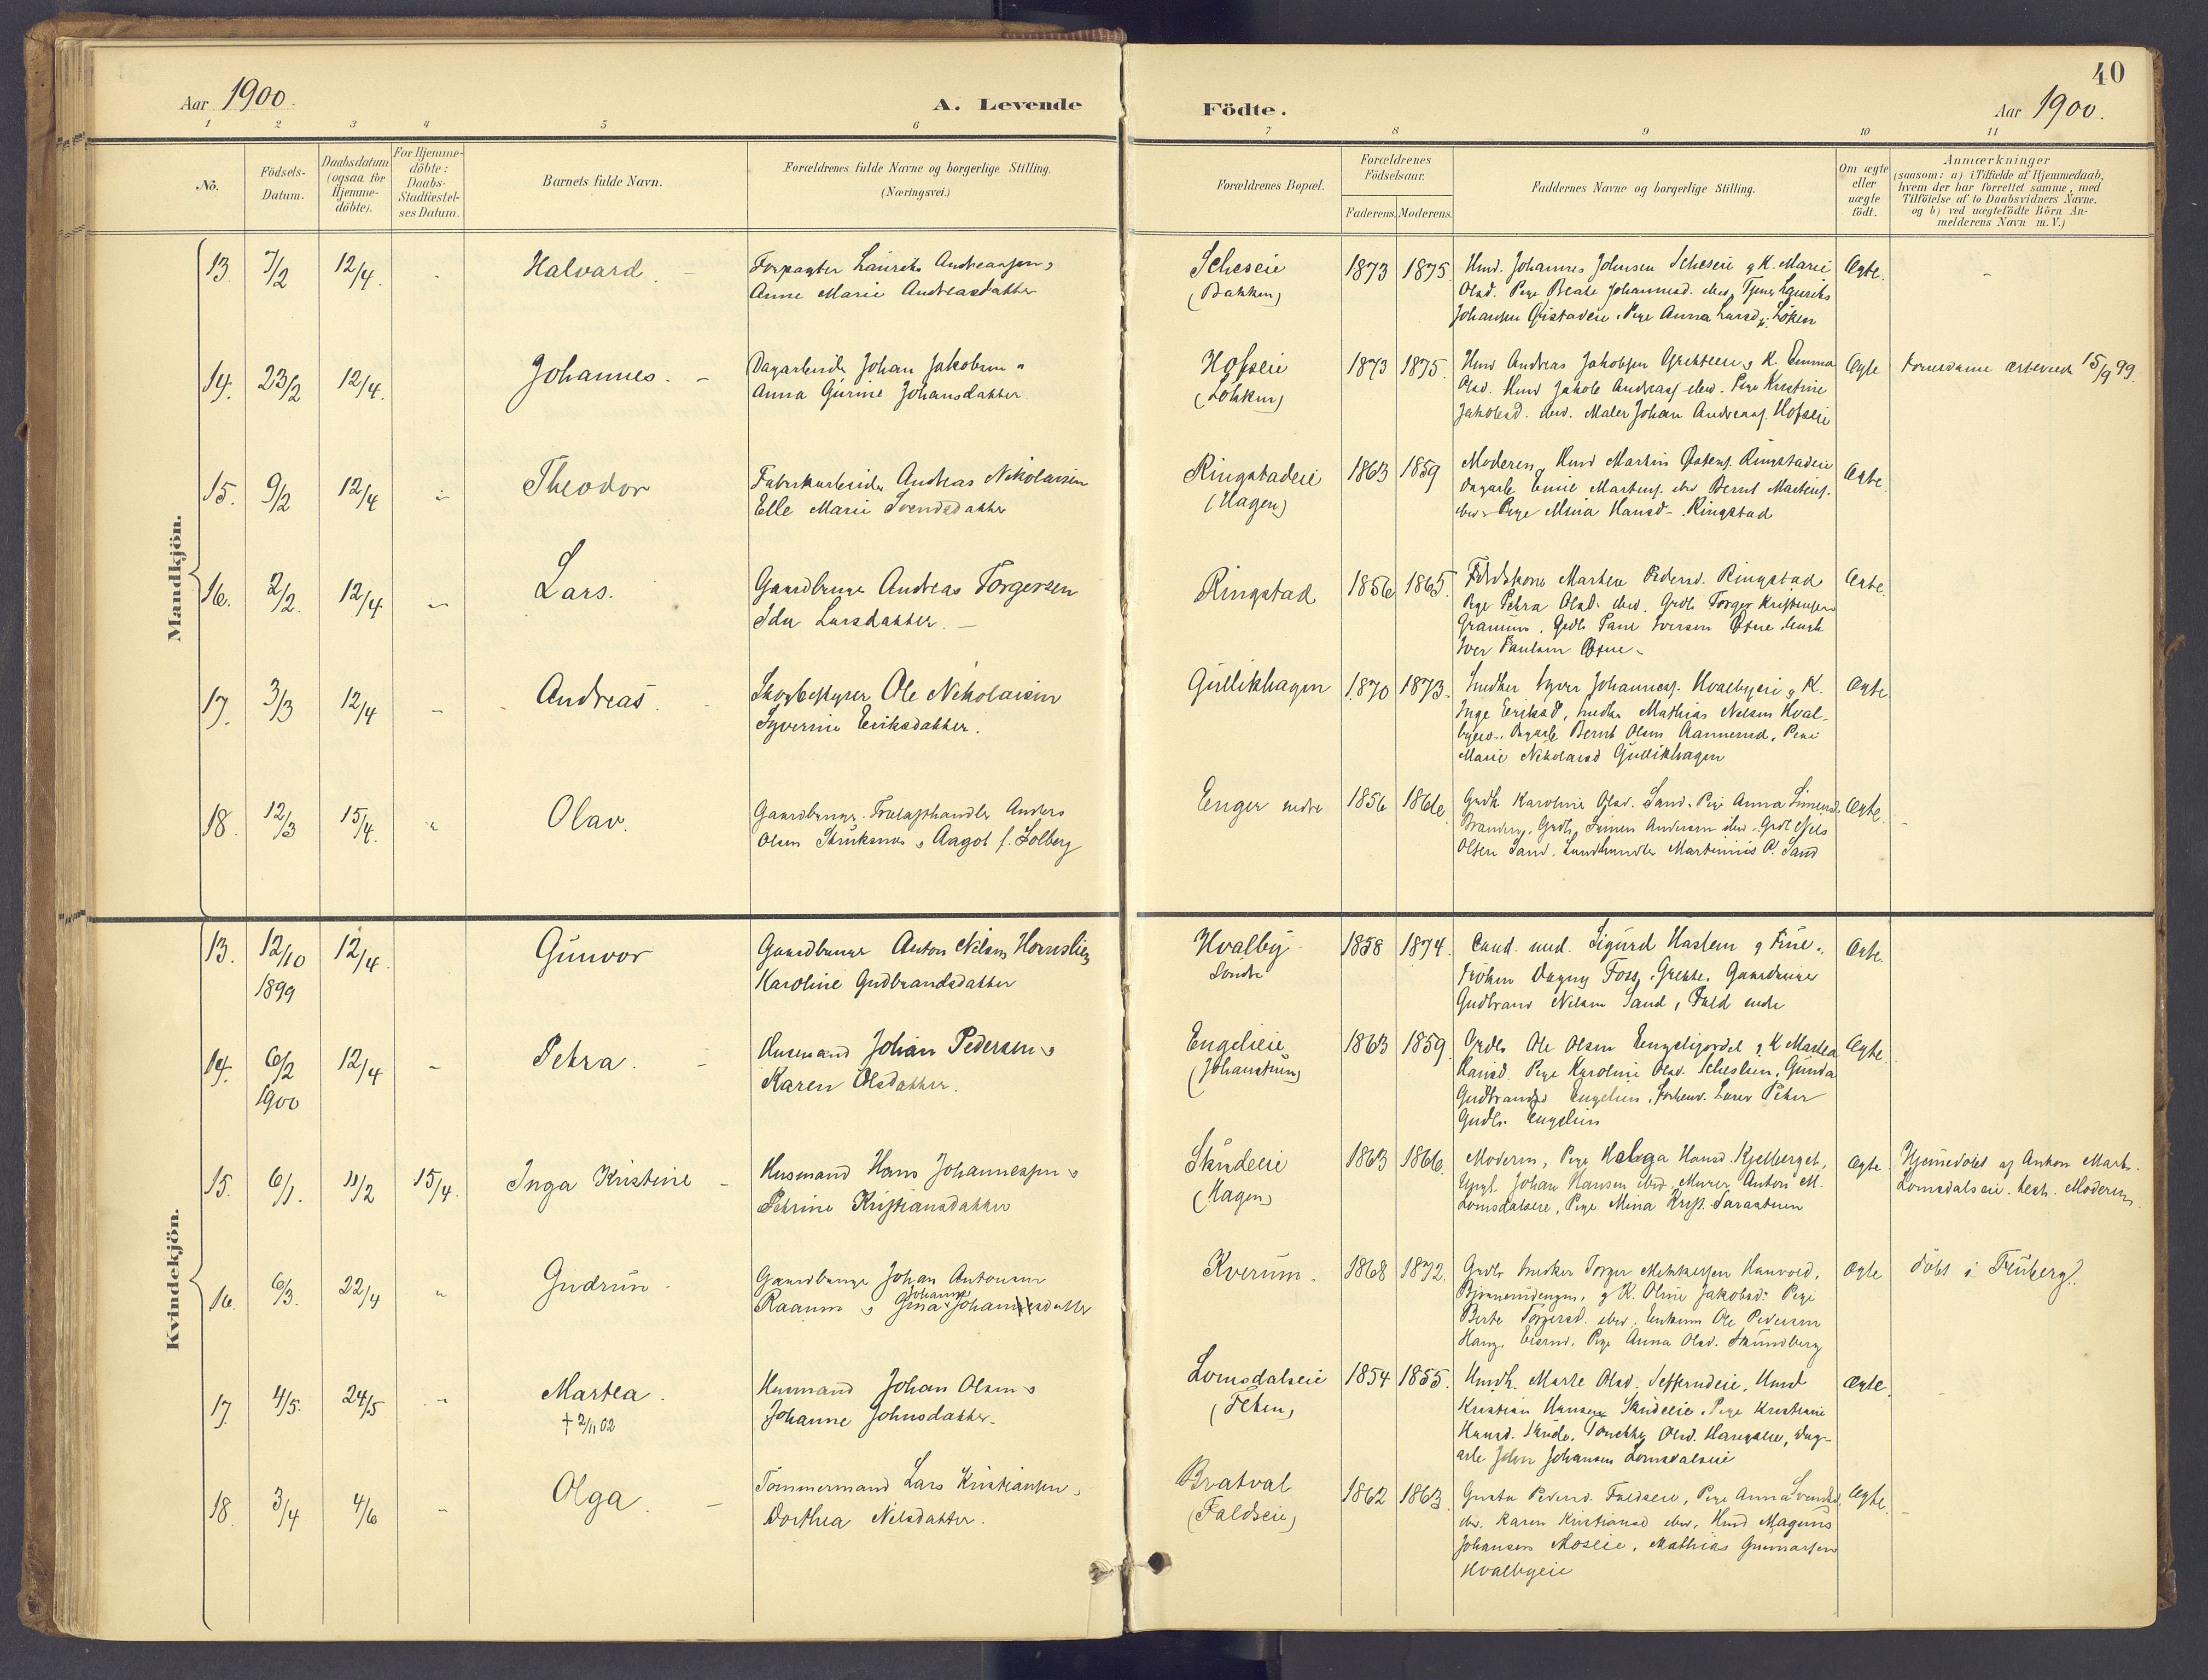 40
Aar 1900.
A. Levende Födte.
Aar 1900.
1 2 3 4 5 6 7 8 9 10 11
No.
Födsels-Datum.
Daabsdatum (ogsaa for Hjemme-döbte).
For Hjemme-döbte: Daabs-Stadfæstel-ses Datum.
Barnets fulde Navn.
Forældrenes fulde Navne og borgerlige Stilling. (Næringsvei.)
Forældrenes Bopæl.
Forældrenes Födselsaar.
Faderens. Moderens.
Faddernes Navne og borgerlige Stilling.
Om ægte eller uægte födt.
Anmærkninger (saasom: a) i Tilfælde af Hjemmedaab, hvem der har forrettet samme, med Tilföielse af to Daabsvidners Navne. og b) ved uægtefödte Börn Anmelderens Navn m. V.)
Mandkjön.
13. 7/2 12/4. Halvard.
Forpagter Laurits Andreassen &
Anne Marie Andreasdatter
(Bakken)
1873 1875.
Hmd. Johannes Johnsen & K. Marie
Olsd. Pige Beate Johannesd. ibid.
Johansen Pige Anna Larsd. Löken
Ægte.
14. 23/2 12/4. Johannes.
Dagarbeider Johan Jakobsen &
Anna Gurine Johansdatter.
Hofseie
1873 1875.
Hmd Andreas Jakobsen & K. Emma
Olsd. Hmd Jakob Andreass. ibid. Pige Kristine
Jakobsd. ibid. Maler Johan Andreass. Hofseie
Ægte
15/9 99.
15. 9/2 12/4 Theodor
Fabrikarbeider Andreas Nikolaisen
Elle Marie Svendsdatter
Ringstadeie
(Hagen)
1863 1859
Moderen, Hmd Martin Ringstadeie
Dagarb. Emil Martins. ibid Bernt Martins.
ibid. Pige Mina Hansd. Ringstad
Ægte.
16. 2/2. 12/4 Lars.
Gaardbruger Andreas Torgersen
Ida Larsdatter.
Ringstad
1856 1865.
Marthea Pedersd. Ringstad
Pige Petra Olsd. ibid. Grdb. Torger Kristensen
Granum, Grdb. Paul Iversen
Iver Paulsen
Ægte.
17. 3/3 12/4 Andreas
Skogbestyrer Ole Nikolaisen
Syverine Eriksdatter.
Gullikhagen
1870 1873.
Snedker Syver Johanness. Hvalbyeie & K.
Inge Eriksd., Snedker Mathias Nilsen Hval-
byeie. Dagarb. Bernt Olsen Pige
Marie Nikolaisd Gullikhagen
Ægte
18. 12/3 15/4. Olav.
Gaardbruger, Trælasthandler Anders
Olsen Struksnæs & Aagot f. Solberg
Enger nedre
1856 1866
Grdb. Karoline Olsd. Sand. Pige Anna Simensd.
Grdb. Simen Andersen ibid. Grdb Nils
Olsen Sand. Landhandler Martinius P. Sand
Ægte.
Kvindekjön.
13. 12/10 1899 12/4. Gunvor
Gaardbruger Anton Nilsen Hornslien
Karoline Gudbrandsdatter
Hvalby
Söndre
1858 1874.
Cand. med. Sigurd Haslem & Frue.
Fröken Dagny Foss, Grette. Gaardbruger
Gudbrand Nilsen Sand, Fald nedre
Ægte.
14. 6/2 1900 12/4 Petra.
Husmand Johan Pedersen &
Karen Olsdatter.
Engelieie
(Johanstuen)
1863 1859.
Grdb. Ole Olsen & K Marthea
Hansd. Pige Karoline Olsd. Gunda
Gudbrandsd Engelien. Lærer Peter
Gudbr. Engelien
Ægte.
15. 6/1. 11/2 15/4. Inga Kristine
Husmand Hans Johannessen &
Petrine Kristiansdatter
Skudeeie
(Hagen)
1863 1866.
Moderen, Pige Helga Hansd. Kjelberget,
Ungk. Johan Hansen ibid. Murer Anton M.
Lomsdalseie, Pige Mina Krist.
Ægte.
Hjemmedöbt af Anton Mart.
Lomsdalseie. test. Moderen.
16. 6/3. 22/4 Gudrun.
Gaardbruger Johan Antonsen
Raanum & Gina Johanne Johannesdatter
Kverum.
1868 1872.
Grdb. Snedker Torger
& K. Oline Jakobsd. Pige
Berte Torgersd. ibid. Enkem. Ole Pedersen
Pige Anna Olsd. Skundberg
Ægte
döbt i Fluberg.
17. 4/5. 24/5 Martea.
† 2/11 02
Husmand Johan Olsen &
Johanne Johnsdatter.
Lomsdalseie
1854 1855.
Marte Olsd. Hmd
Kristian Hansen Skudeeie. Pige Kristiane
Hansd. Skude. Olsd. Dag-
arb. John Johansen Lomsdalseie
Ægte.
18. 3/4 4/6 Olga.
Tömmermand Lars Kristiansen &
Dorthea Nilsdatter.
Bratval
(Faldseie)
1862 1863.
Pedersd. Faldseie, Pige Anna Svendsd.
ibid. Karen Kristiansd ibid, Hmd Magnus
Johansen Moseie, Mathias Gunnarsen
Hvalbyeie
Ægte.